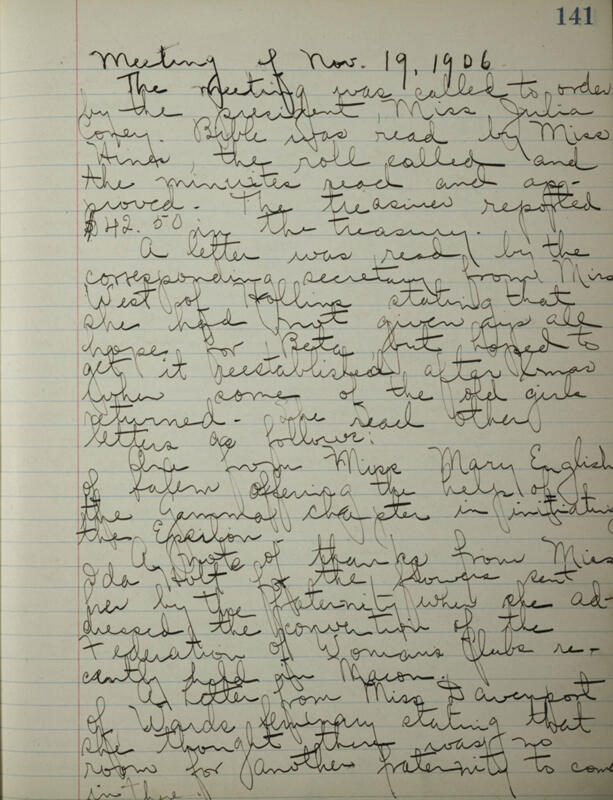 141
Meeting of Nov. 19, 1906
The meeting was called to order
by the president, Miss Julia
Coney. Bible was read by Miss
Hines, the roll called and
the minutes read and ap-
proved. The treasurer reported
$42.50 in the treasury.
A letter was read by the
corresponding secretary from Miss
West of Hollins stating that
she had not given up all
hope for Beta, but hoped to
get it reestablished after Xmas
when some of the old girls
returned. She read other
letters as follows:
One from Miss Mary English
of Salem offering the help of
the Gamma chapter in initiating
the Epsilon.
A note of thanks from Miss
Ida Holt for the flowers sent
her by the fraternity when she ad-
dressed the convention of the
Federation of Womans Clubs re-
cently held in Macon.
A letter from Miss Davenport
of Wards Seminary stating that
she thought there was no
room for another fraternity to come
in there.